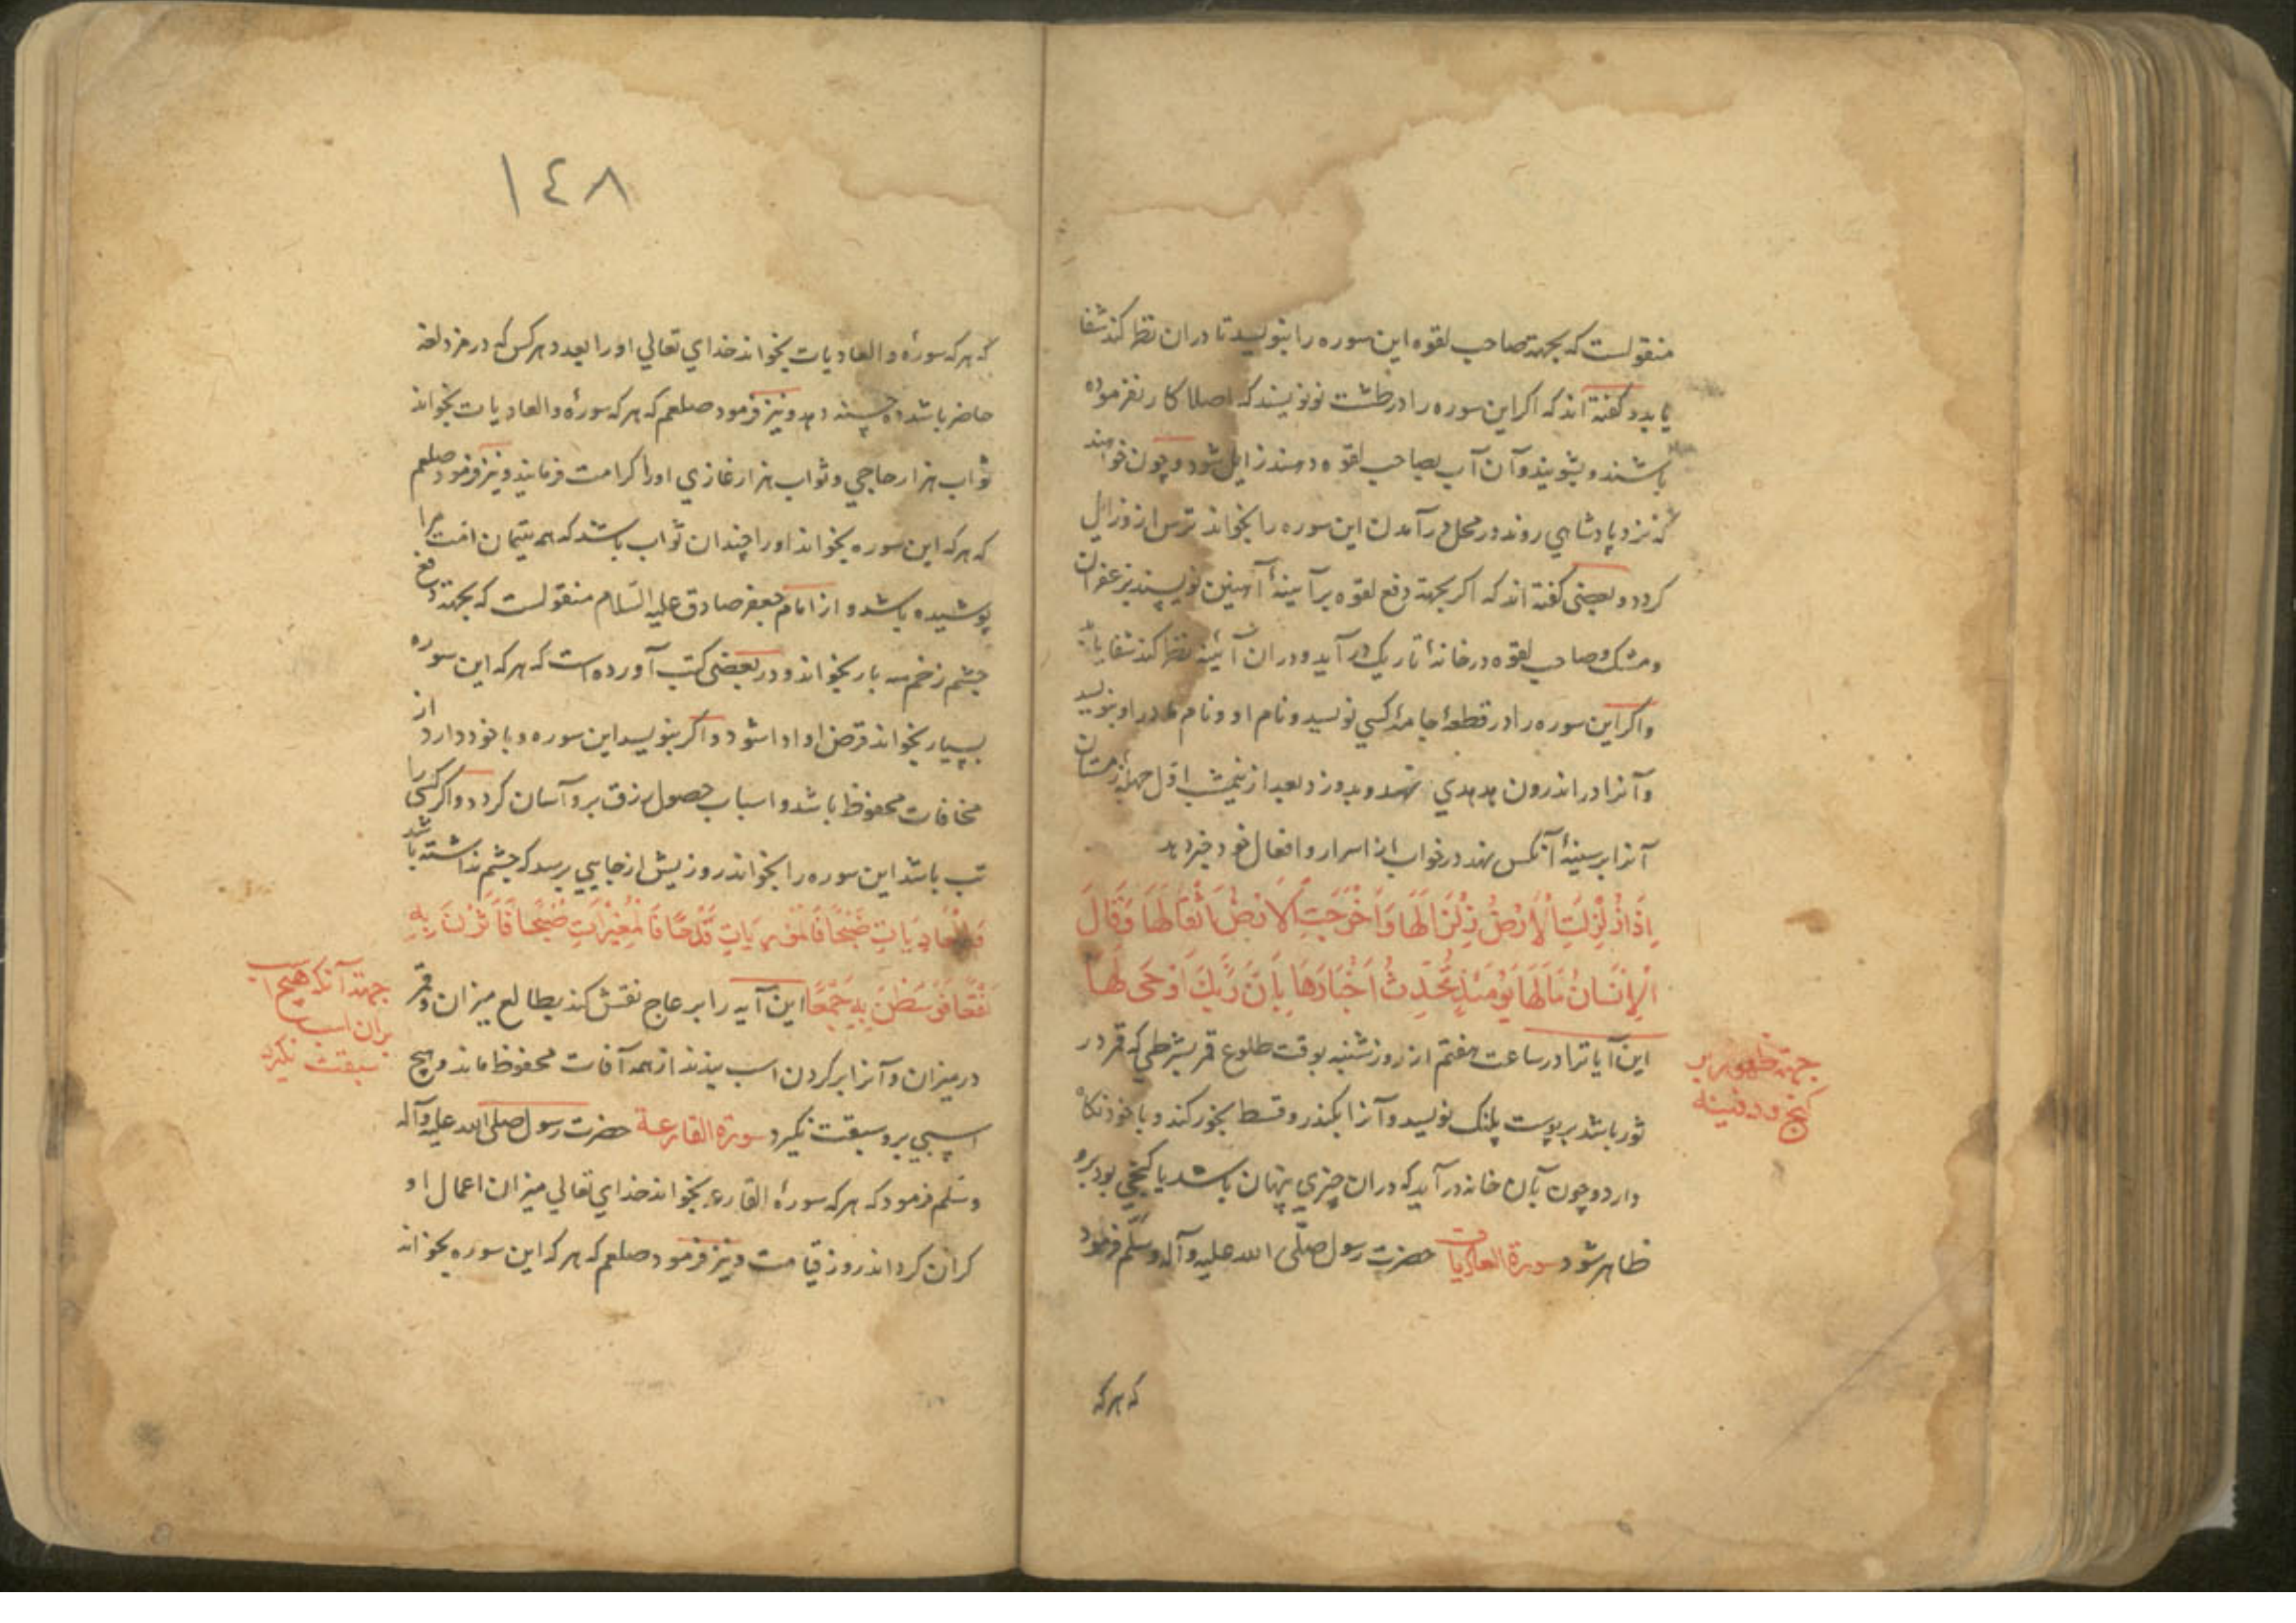 منقولست که بجهة صاحب لقوه این سوره را بنویسد تا دران نظر کند شفا
یابد و کفته اند که اکر این سوره را در طشت نو نویسند که اصلا کار نفرموده
باشند و بشویند و آن آب بصاحب لقوه دهند زایل شود و چون خواهند
که نزد پادشاهی روند در محل در آمدن این سوره را بخواند ترس از و زایل
کردد و بعضی کفته اند که اکر بجهة دفع لقوه بر آیینهٔ آهنین نویسند بزعفران
و مشک و صاحب لقوه در خانهٔ تاریک در آید و دران آئینه نظر کند شفا یابد
و اکر این سوره را در قطعهٔ جامهٔ کسی نویسد و نام او و نام مادر او بنویسد
و آنرا در اندرون هدهدی نهد و بدوزد بعد از نیمشب اول چلهٔ زمستان
آنرا بر سینهٔ آنکس نهد در خواب از اسرار و افعال خود خبر دهد
اِذَا زُلْزِلَتِ الْاَرْضُ زِلْزَالَهَا وَاَخْرَجَتِ الْاَرْضُ اَثْقَالَهَا وَقَالَ
الْاِنْسَانُ مَالَهَا یَوْمَئِذٍ تُحَدِّثُ اَخْبَارَهَا بِاَنَّ رَبَّكَ اَوْحَی لَهَا
این آیاترا در ساعت هفتم از روز شنبه بوقت طلوع قمر بشرطی که قمر در
ثور باشد بر پوست پلنک نویسد و آنرا بکندر و قسط بخور کند و با خود نکاه
دارد و چون بآن خانه در آید که دران چیزی پنهان باشد یا کنجی بود برو
ظاهر شود سورة العادیات حضرت رسول صلّی الله علیه وآله وسلّم فرمود
جهة ظهور بر
کنج و دفینه
که هر که
١٤٨
که هر که سورهٔ والعادیات بخواند خدای تعالی او را بعدد هر کس که در مزدلفه
حاضر باشد ده حسنه دهد و نیز فرمود صلعم که هر که سورهٔ والعادیات بخواند
ثواب هزار حاجی و ثواب هزار غازی او را کرامت فرمایند و نیز فرمود صلعم
که هر که این سوره بخواند او را چندان ثواب باشد که همه یتیمان امت مرا
پوشیده باشد و از امام جعفر صادق علیه السّلام منقولست که بجهة دفع
چشم زخم سه بار بخواند و در بعضی کتب آورده است که هر که این سوره
بسیار بخواند قرض او ادا شود و اکر بنویسد این سوره و با خود دارد از
مخافات محفوظ باشد و اسباب حصول رزق برو آسان کردد و اکر کسی را
تب باشد این سوره را بخواند روزیش از جایی برسد که چشم نداشته باشد
وَالْعَادِیَاتِ ضَبْحًا فَالْمُورِیَاتِ قَدْحًا فَالْمُغِیْرَاتِ صُبْحًا فَاَثَرْنَ بِهِ
نَقْعًا فَوَسَطْنَ بِهِ جَمْعًا این آیه را بر عاج نقش کند بطالع میزان و قمر
در میزان و آنرا بر کردن اسب بندند از همه آفات محفوظ ماند و هیچ
اسبی برو سبقت نکیرد سورة القارعة حضرت رسول صلی الله علیه وآله
وسلّم فرمود که هر که سورهٔ القارعه بخواند خدای تعالی میزان اعمال او
کران کرداند روز قیامت و نیز فرمود صلعم که هر که این سوره بخواند
جهة آنکه هیچ اسب
بران اسب
سبقت نکیرد